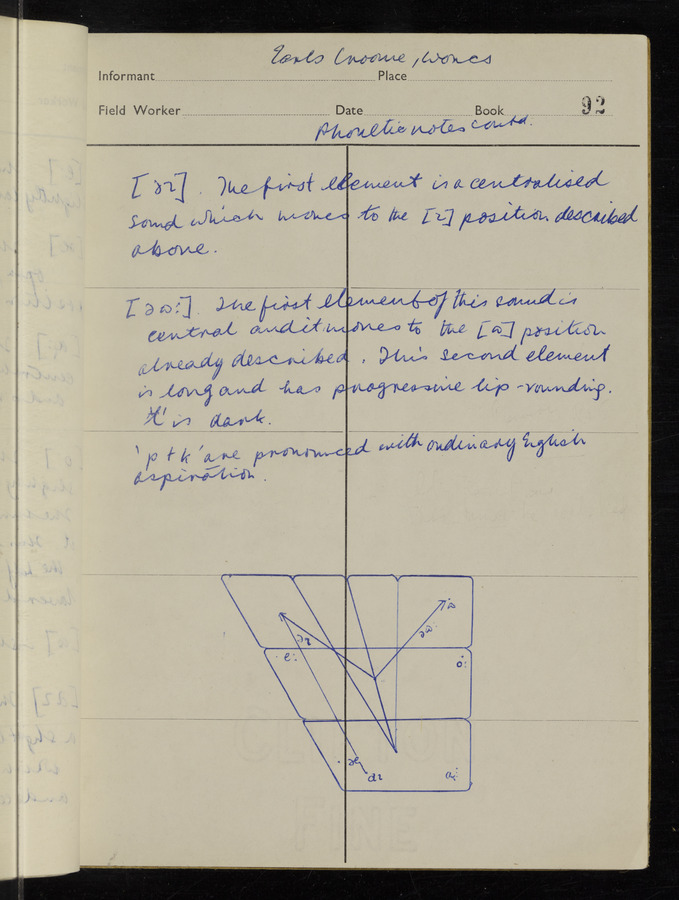 Earls Croome, Worcs
Informant Place
Field Worker Date Book 92
Phonetic notes contd.
[əɪ]. The first element is a centralised
sound which moves to the [ɪ] position described
above.
[əɷ:]. The first element of this sound is
central and it moves to the [ɷ] position
already described. This second element
is long and has progressive lip-rounding.
'ɫ' is dark.
'p t k' are pronounced with ordinary English
aspiration.
ɷ
əɪ əɷ:
e: o:
æ
aɪ ɑ:
FINE